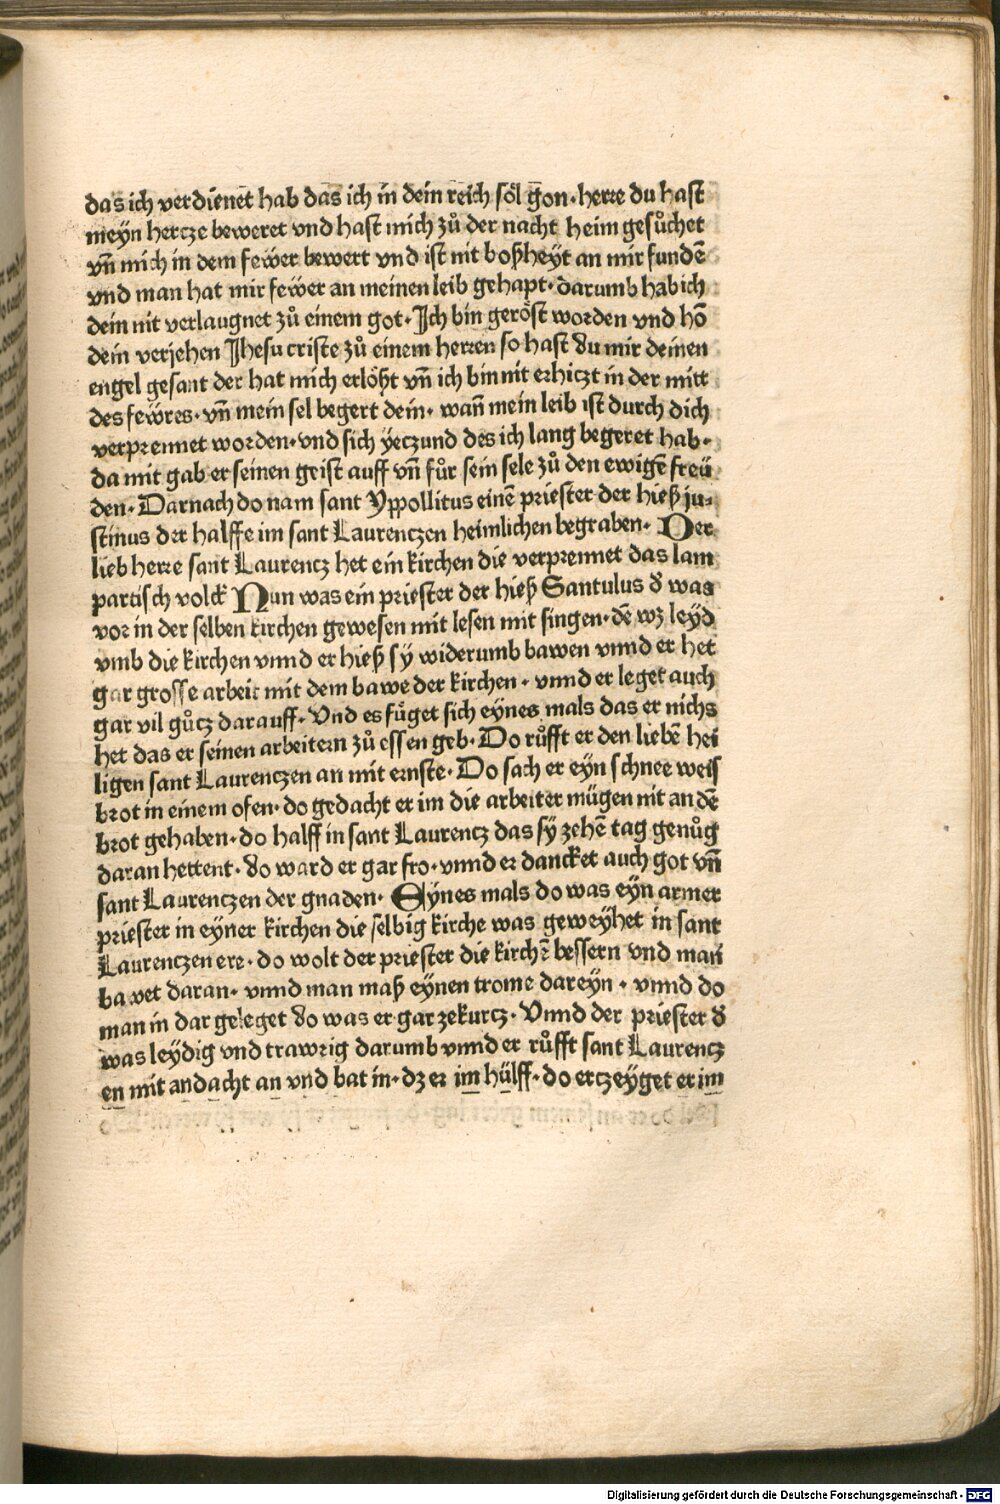 das ich verdienet hab das ich in dein reich söl gon·herre du hast
meyn hertze beweret vnd hast mich zů der nacht heim gesůchet
vñ mich in dem fewer bewert vnd ist nit boßheyt an mir fundē
vnd man hat mir fewer an meinen leib gehapt·darumb hab ich
dein nit verlaugnet zů einem got·Ich bin geröst worden vnd hō
dein verjehen Jhesu criste zů einem herren so hast du mir deinen
engel gesant der hat mich erlößt vñ ich bin nit erhiczt in der mitt
des fewres·vñ mein sel begert dein·wañ mein leib ist durch dich
verprennet worden·vnd sich yeczund des ich lang begeret hab·
da mit gab er seinen geist auff vñ fůr sein sele zů den ewigē freü
den·Darnach do nam sant Yppollitus einē priester der hieß ju⸗
stinus der halffe im sant Laurenczen heimlichen begraben·Der
lieb herre sant Laurencz het ein kirchen die verprennet das lam
partisch volck Nun was ein priester der hieß Santulus d̕ was
vor in der selben kirchen gewesen mit lesen mit singen·dē wz leyd
vmb die kirchen vnnd er hieß sÿ widerumb bawen vnnd er het
gar grosse arbeit mit dem bawe der kirchen·vnnd er leget auch
gar vil gůcz darauff·Vnd es füget sich eynes mals das er nichs
het das er seinen arbeitern zů essen geb·Do růfft er den liebē hei
ligen sant Laurenczen an mit ernste·Do sach er eyn schnee weis
brot in einem ofen·do gedacht er im die arbeiter mügen nit an dē
brot gehaben·do halff in sant Laurencz das sÿ zehē tag genůg
daran hettent·do ward er gar fro·vnnd er dancket auch got vñ
sant Laurenczen der gnaden·Eynes mals do was eyn armer
priester in eyner kirchen die selbig kirche was geweyhet in sant
Laurenczen ere·do wolt der priester die kirchē bessern vnd man
bawet daran·vnnd man maß eynen trome dareyn·vnnd do
man in dar geleget do was er gar zekurcz·Vnnd der priester d̕
was leydig vnd trawrig darumb vnnd er růfft sant Laurencz
en mit andacht an vnd bat in·dz er im hülff·do erczeyget er im
Digitalisierung gefördert durch die Deutsche Forschungsgemeinschaft - DFG